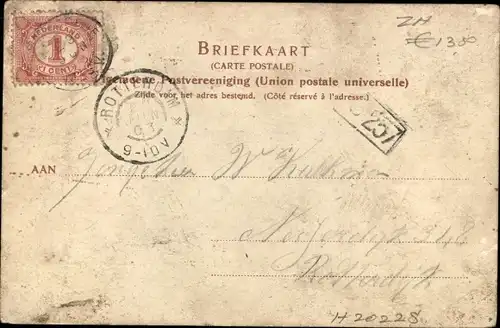 NEDERLAND
1
1 CENT
ZH
€1300
BRIEFKAART
(CARTE POSTALE)
Algemeene Postvereeniging (Union postale universelle)
Zijde voor het adres bestemd. (Côté réservé à l'adresse.)
ROTTERDAM
6-10V
257
AAN
W
218
Rotterdam
H20228